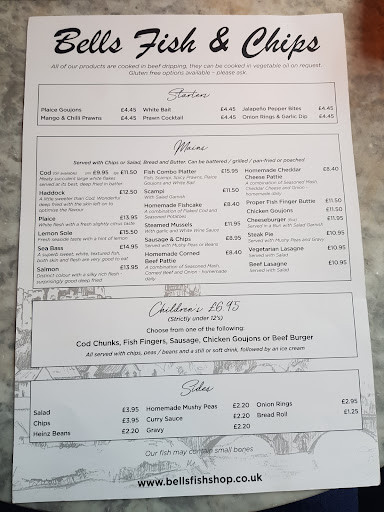 Bells Fish & Chips
All of our products are cooked in beef dripping, they can be cooked in vegetable oil on request.
Gluten free options available - please ask.
Starters
Plaice Goujons £4.45 White Bait £4.45 Jalapeño Pepper Bites £4.45
Mango & Chilli Prawns £4.45 Prawn Cocktail £4.45 Onion Rings & Garlic Dip £4.45
Mains
Served with Chips or Salad, Bread and Butter. Can be battered / grilled / pan-fried or poached
Cod £9.95 £11.50
Meaty succulent large white flakes
served at its best, deep fried in batter
Haddock £12.50
A little sweeter than Cod. Wonderful
deep fried with the skin left on to
optimise the flavour
Plaice £13.95
White flesh with a fresh slightly citrus taste
Lemon Sole £15.50
Fresh seaside taste with a hint of lemon
Sea Bass £14.95
A superb sweet, white, textured fish,
both skin and flesh are very good to eat
Salmon £13.95
Distinct colour with a silky rich flesh -
surprisingly good deep fried
Fish Combo Platter £15.95
Fish, Scampi, Spicy Prawns, Plaice
Goujons and White Bait
Scampi £11.50
With Salad Garnish
Homemade Fishcake £8.40
A combination of Flaked Cod and
Seasoned Potatoes
Steamed Mussels £11.95
With garlic and White Wine Sauce
Sausage & Chips £8.95
Served with Mushy Peas or Beans
Homemade Corned £8.40
Beef Pattie
A combination of Seasoned Mash,
Corned Beef and Onion - homemade
daily
Homemade Cheddar £8.40
Cheese Pattie
A combination of Seasoned Mash,
Cheddar Cheese and Onion -
homemade daily
Proper Fish Finger Buttie £11.50
Chicken Goujons £11.50
Cheeseburger £11.95
Served in a Bun with Salad Garnish
Steak Pie £10.95
Served with Mushy Peas and Gravy
Vegetarian Lasagne £10.95
Served with Salad
Beef Lasagne £10.95
Served with Salad
Children's £6.45
(Strictly under 12's)
Choose from one of the following:
Cod Chunks, Fish Fingers, Sausage, Chicken Goujons or Beef Burger
All served with chips, peas / beans and a still or soft drink, followed by an ice cream
Sides
Salad £3.95 Homemade Mushy Peas £2.20 Onion Rings £2.95
Chips £3.95 Curry Sauce £2.20 Bread Roll £1.25
Heinz Beans £2.20 Gravy £2.20
Our fish may contain small bones
www.bellsfishshop.co.uk